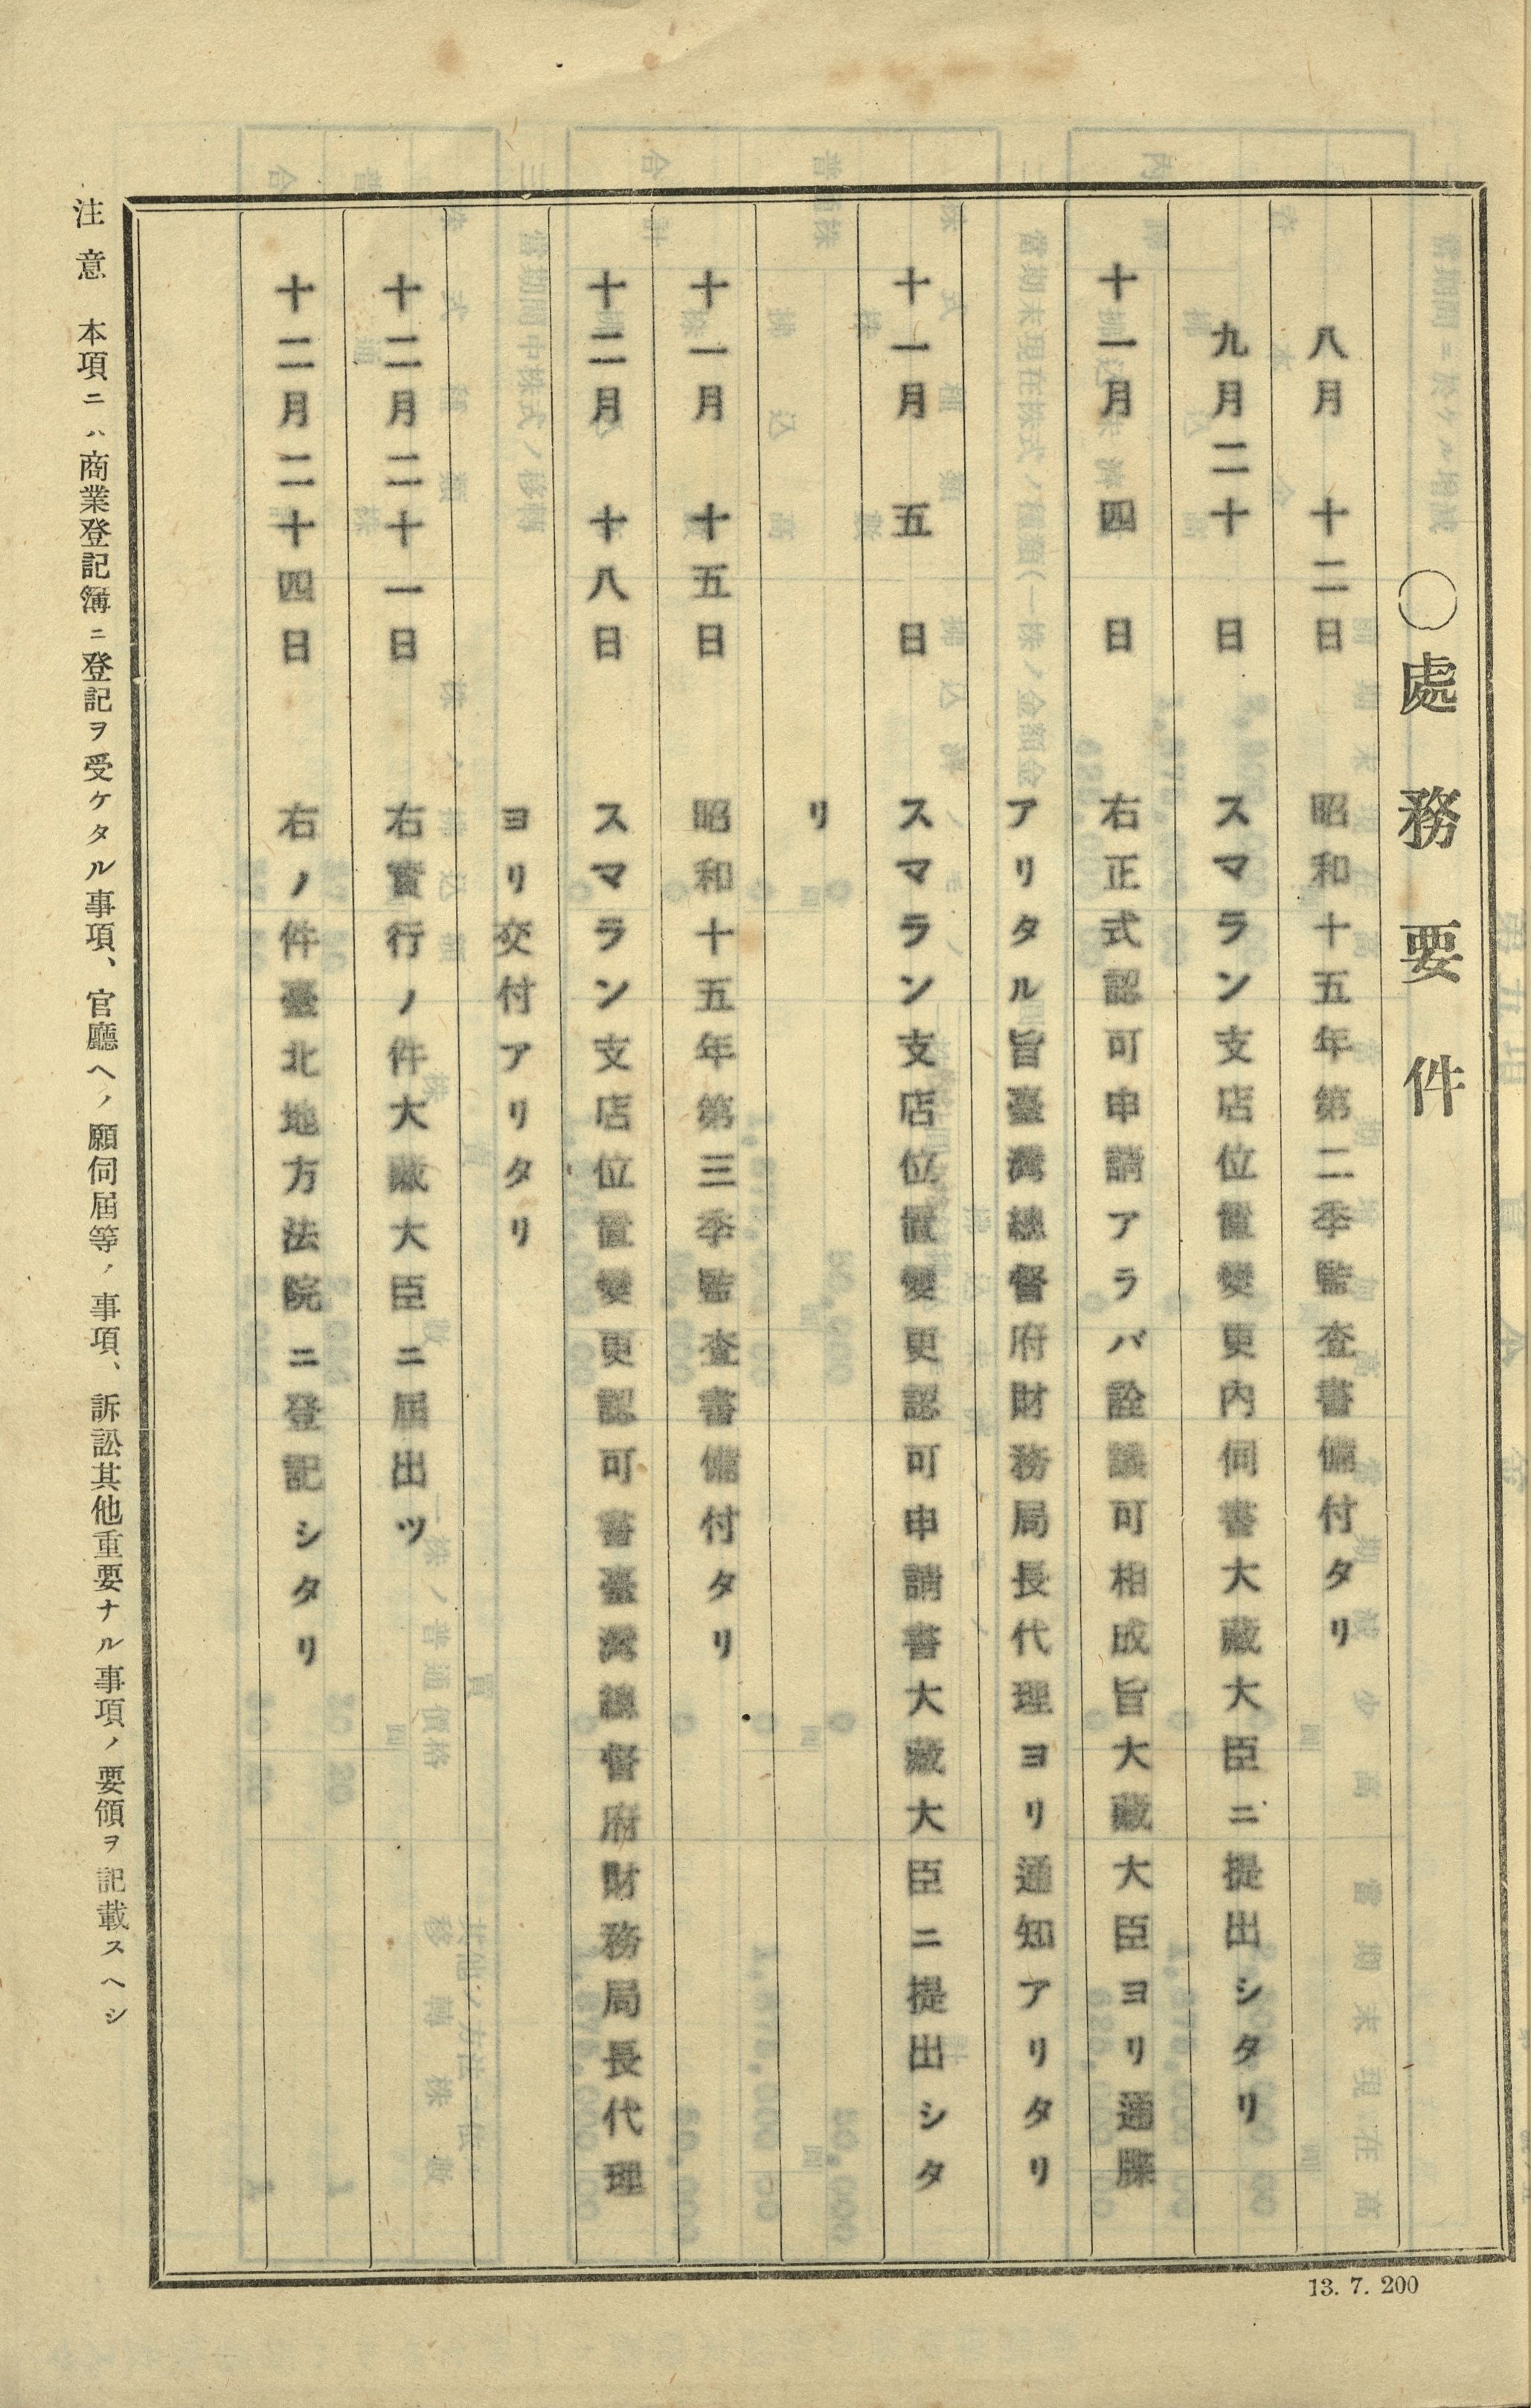 〇處務要件
八月十二日 昭和十五年第二季監査書備付タリ
九月二十日 スマラン支店位置變更內伺書大藏大臣ニ提出シタリ
十一月四日 右正式認可申請アラバ詮議可相成旨大藏大臣ヨリ通牒
アリタル旨臺灣總督府財務局長代理ヨリ通知アリタリ
十一月五日 スマラン支店位置變更認可申請書大藏大臣ニ提出シタ
リ
十一月十五日 昭和十五年第三季監査書備付タリ
十二月十八日 スマラン支店位置變更認可書臺灣總督府財務局長代理
ヨリ交付アリタリ
十二月二十一日 右實行ノ件大藏大臣ニ屆出ツ
十二月二十四日 右ノ件臺北地方法院ニ登記シタリ
注意 本項ニハ商業登記簿ニ登記ヲ受ケタル事項、官廳ヘノ願伺屆等ノ事項、訴訟其他重要ナル事項ノ要領ヲ記載スヘシ
13. 7. 200